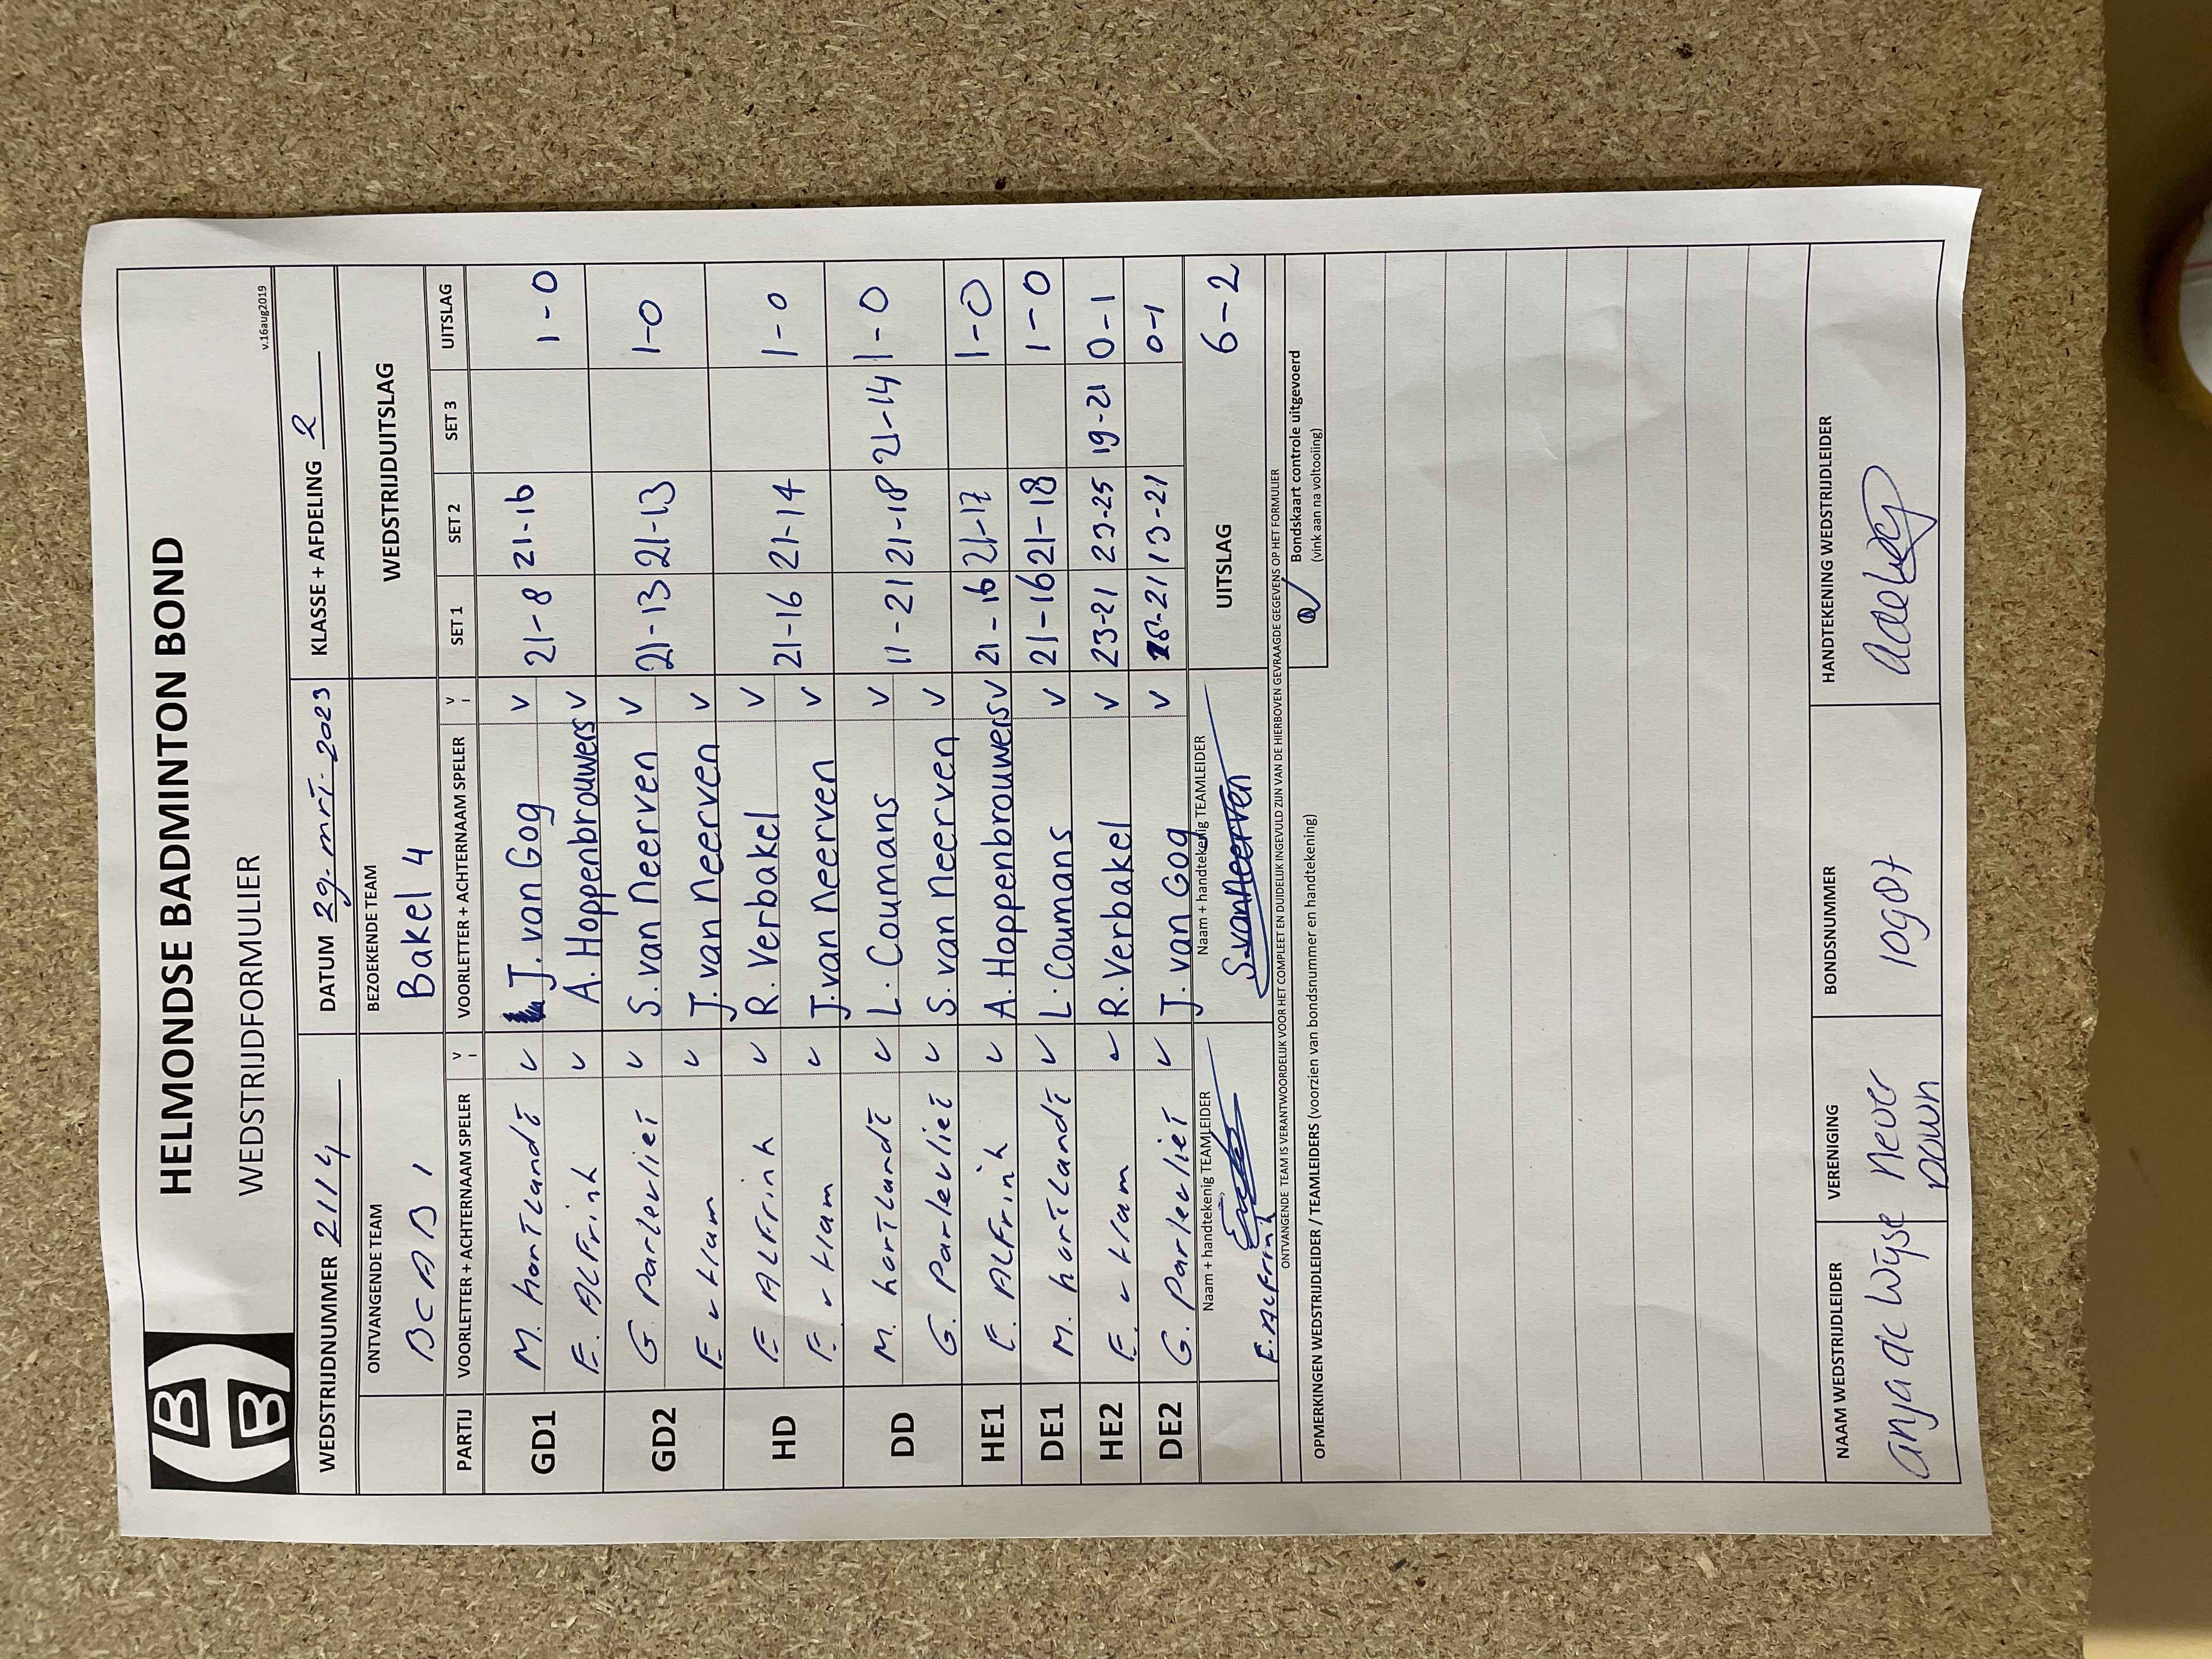 HBB
HELMONDSE BADMINTON BOND
WEDSTRIJDFORMULIER
v.16aug2019
WEDSTRIJDNUMMER 21114 DATUM 29-mrt-2023 KLASSE + AFDELING 2
ONTVANGENDE TEAM BEZOEKENDE TEAM WEDSTRIJDUITSLAG
BCAB 1 Bakel 4
PARTIJ VOORLETTER + ACHTERNAAM SPELER V I VOORLETTER + ACHTERNAAM SPELER V I SET 1 SET 2 SET 3 UITSLAG
GD1 M. hortLandt v J. van Gog v 21-8 21-16 1-0
E. ALFrink v A. Hoppenbrouwers v
GD2 G Parlevliet v S. van Neerven v 21-13 21-13 1-0
E v Ham v J. van Neerven v
HD E ALFrink v R. Verbakel v 21-16 21-14 1-0
E. v Ham v J. van Neerven v
DD M. hortLandt v L. Coumans v 11-21 21-18 21-14 1-0
G. Parlevliet v S. van Neerven v
HE1 E. ALFrink v A. Hoppenbrouwers v 21-16 21-17 1-0
DE1 M. hortLandt v L. Coumans v 21-16 21-18 1-0
HE2 E. v Ham v R. Verbakel v 23-21 23-25 19-21 0-1
DE2 G. Parlevliet v J. van Gog v 13-21 0-1
Naam + handtekenig TEAMLEIDER Naam + handtekenig TEAMLEIDER UITSLAG 6-2
E. ALFrink S. van Neerven
ONTVANGENDE TEAM IS VERANTWOORDELIJK VOOR HET COMPLEET EN DUIDELIJK INGEVULD ZIJN VAN DE HIERBOVEN GEVRAAGDE GEGEVENS OP HET FORMULIER
Bondskaart controle uitgevoerd
(vink aan na voltooiing)
OPMERKINGEN WEDSTRIJDLEIDER / TEAMLEIDERS (voorzien van bondsnummer en handtekening)
NAAM WEDSTRIJDLEIDER VERENIGING BONDSNUMMER HANDTEKENING WEDSTRIJDLEIDER
Anja de Wijse Never Down 109087